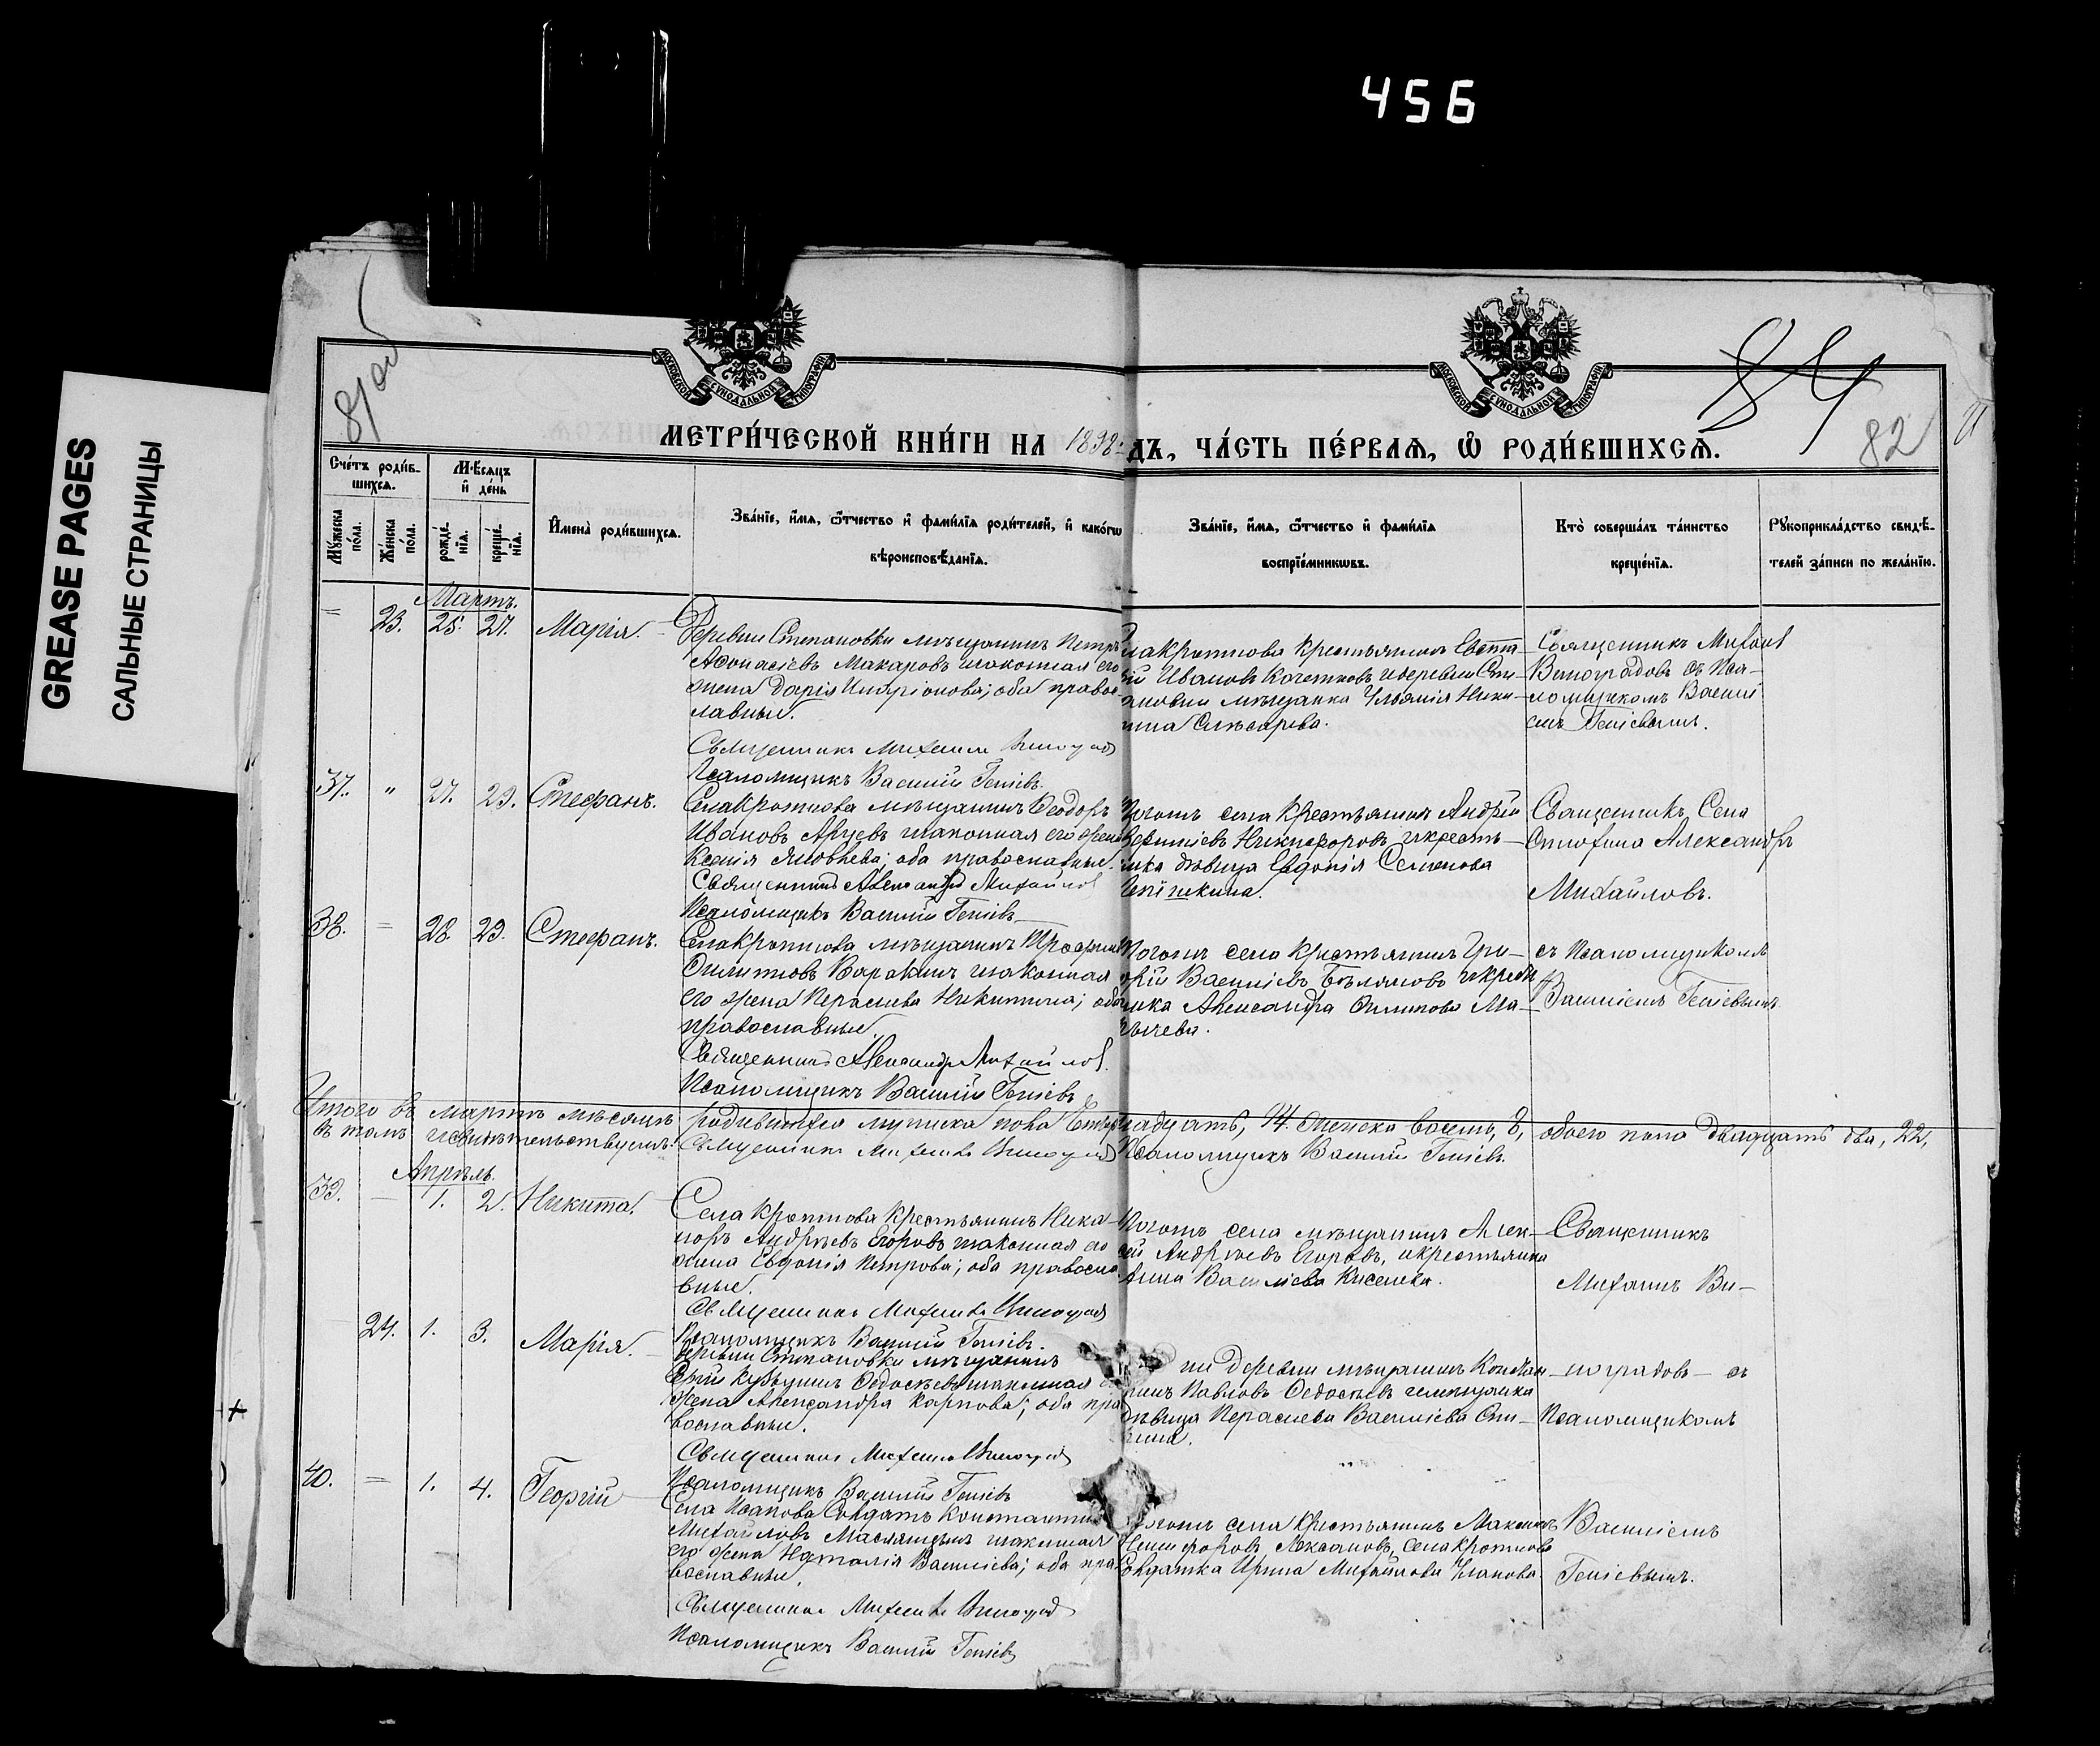 456
GREASE PAGES
САЛЬНЫЕ СТРАНИЦЫ
81 об
84
82
МОСКОВСКОЙ СУНОДАЛЬНОЙ ТИПОГРАФІИ
МОСКОВСКОЙ СУНОДАЛЬНОЙ ТИПОГРАФІИ
МЕТРИ́ЧЕСКОЙ КНИ́ГИ НА 1898 ДЪ, ЧА́СТЬ ПЕ́РВАЯ, Ѽ РОДИ́ВШИХСЯ.
Сче́тъ роди́в-
шихся.
Мѣ́сяцъ
и҆ де́нь
Мꙋ́жеска по́ла.
Же́нска по́ла.
рожде́-
нїя.
креще́-
нїя.
И҆мена̀ роди́вшихся.
Зва́нїе, и҆́мя, ѻ҆́тчество и҆ фами́лїя роди́телей, и҆ како́гѡ
вѣроисповѣ́данїя.
Зва́нїе, и҆́мя, ѻ҆́тчество и҆ фами́лїя
воспрїе́мникѡвъ.
Кто̀ соверша́лъ та́инство
креще́нїя.
Рꙋкоприкла́дство свидѣ́-
телей за́писи по жела́нїю.
Мартъ.
23. 25. 27. Марія.
Деревни Степановки мѣщанинъ Петръ
Аѳонасіевъ Макаровъ и законная его
жена Дарія Иларіонова; оба правос-
лавные.
Священникъ Михаилъ Виноградов
Псаломщикъ Василій Геніевъ.
лакроткова крестьянинъ
ій Ивановъ Кочетковъ и деревни Сте-
ановки мѣщанка Ульянія Ники-
тина Слесарева.
Священникъ Михаил
Виноградовъ съ Пса-
ломщикомъ Василі
емъ Геніевымъ.
37. " 27. 29. Стефанъ.
Села Кроткова мѣщанинъ Ѳеодоръ
Ивановъ и законная его жена
Ксенія Яковлева; оба православные.
Священникъ Александръ Михайлов
Псаломщикъ Василій Геніевъ
Тогожъ села крестьянинъ Андрей
Никифоровъ и кресть-
нка дѣвица Евдокія Семенова
Священникъ Села
Александръ
Михайловъ.
38. = 28. 29. Стефанъ.
Села Кроткова мѣщанинъ Трофимъ
Филиповъ и законная
его жена Параскева Никитина; оба
православные.
Священникъ Александръ Михайлов.
Псаломщикъ Василій Геніевъ
Тогожъ села крестьянинъ Гри-
орій Василіевъ Бѣляковъ и кресть
нка Александра Филипова Ма-
съ Псаломщикомъ
Василіемъ Геніевымъ
Итого въ мартѣ мѣсяцѣ родившихся мужеска пола Четыр надцать, 14. Женска восемь, 8, обоего пола двадцать два, 22,
въ томъ и свидѣтельствуемъ: Священникъ Михаилъ Виноградов Псаломщикъ Василій Геніевъ.
Апрѣль.
39. — 1. 2. Никита.
Села Кроткова крестьянинъ Ника-
норъ Андреевъ Егоровъ и законная его
жена Евдокія Петрова; оба правосла
вные.
Священникъ Михаилъ Виноградов
Псаломщикъ Василій Геніевъ.
Тогожъ села мѣщанинъ Алек-
сѣй Андреевъ Егоровъ, и крестьянка
Анна Василіева Киселева.
Священникъ
Михаилъ Ви-
24. 1. 3. Марія.
Деревни Степановки мѣщанинъ
Кузьминъ Ѳедосѣевъ и законная
жена Александра Карпова; оба пра
вославные.
Священникъ Михаилъ Виноградов
Псаломщикъ Василій Геніевъ
деревни мѣщанинъ Констан-
тинъ Павловъ Ѳедосѣевъ и мѣщанка
дѣвица Параскева Василіева
ноградовъ съ
Псаломщикомъ
40. = 1. 4. Георгій
Села Исакова Солдатъ Константинъ
Михайловъ и законная
его жена Наталія Василіева; оба пра
вославные.
Священникъ Михаилъ Виноградов
Псаломщикъ Василій Геніевъ
Тогожъ села крестьянинъ Максимъ
Никифоровъ села Кроткова
Солдатка Ирина Михайлова
Василіемъ
Геніевымъ.